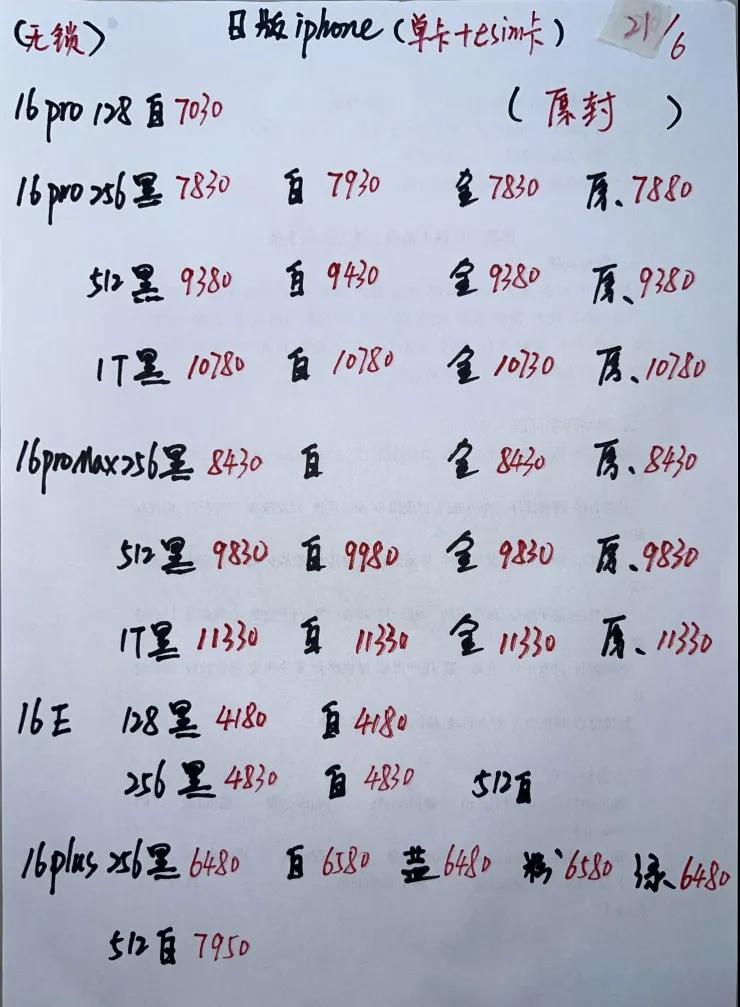 (无锁) 日版iphone(单卡+esim卡) 21/6
16pro 128白7030 (原封)
16pro 256黑 7830 白 7930 金 7830 原、7880
512黑 9380 白 9430 金 9380 原、9380
1T黑 10780 白 10780 金 10730 原、10780
16proMax256黑 8430 白 金 8430 原、8430
512黑 9830 白 9980 金 9830 原、9830
1T黑 11330 白 11330 金 11330 原、11330
16E 128黑 4180 白 4180
256黑 4830 白 4830 512白
16plus 256黑 6480 白 6580 蓝 6480 粉 6580 绿、6480
512白 7950